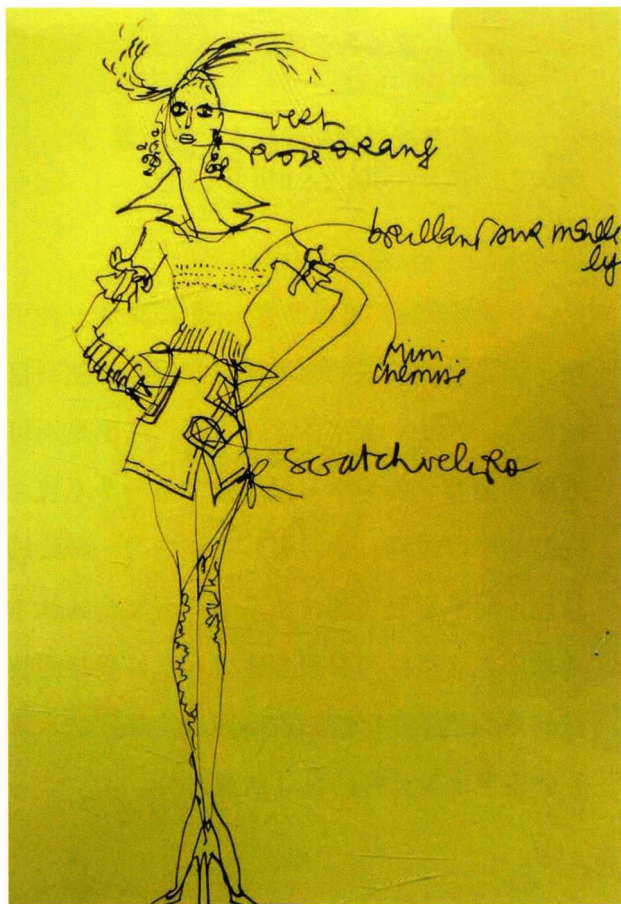 vert
rose orang
brillant sur maille
ly
Mini
chemise
scratch velcro